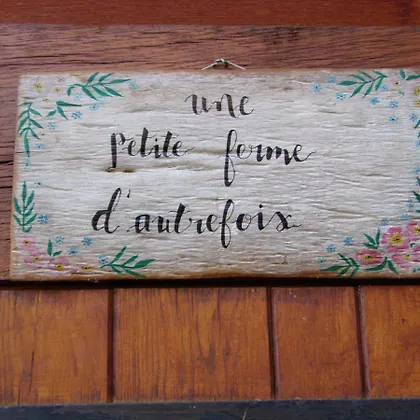 une
petite ferme
d'autrefois